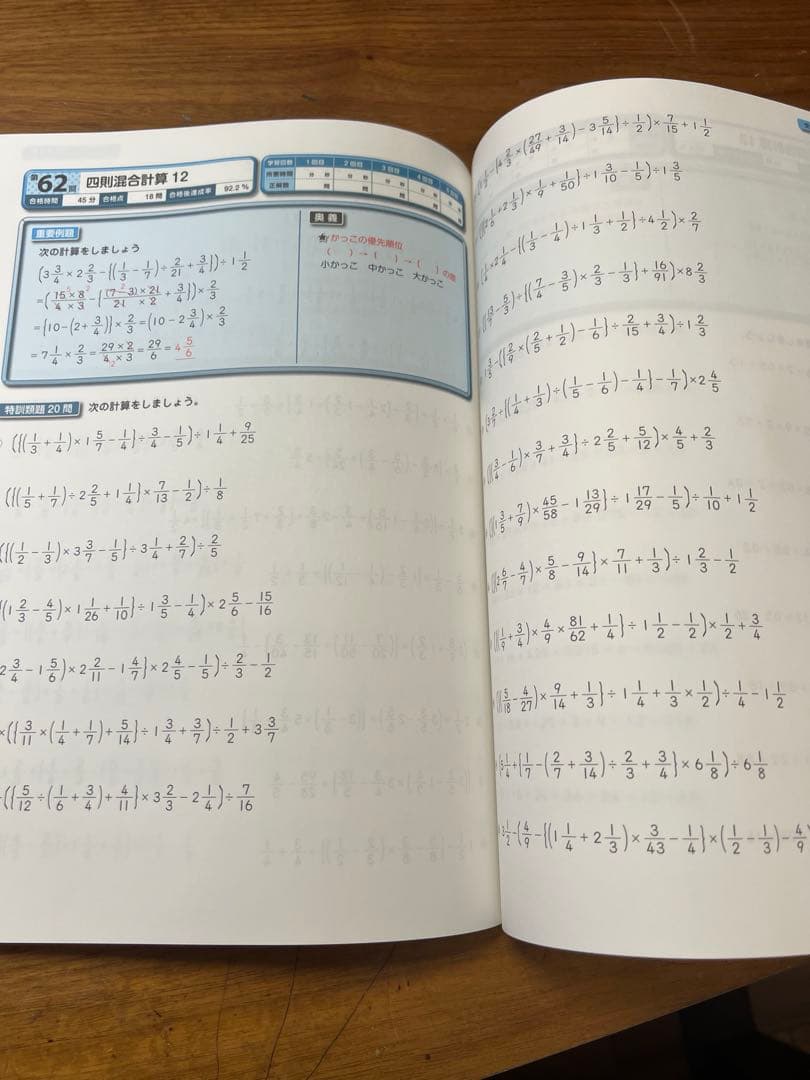 第62問 四則混合計算 12
合格時間 45分 合格点 18問 合格後達成率 92.2%
学習回数 1回目 2回目 3回目 4回目
所要時間 分 秒 分 秒 分 秒 分 秒
正解数 問 問 問 問
重要例題
次の計算をしましょう
(3 3/4 × 2 2/3 − {(1/3 − 1/7) ÷ 2/21 + 3/4}) ÷ 1 1/2
= (15×8/4×3 − {(7−3)×21/21×2 + 3/4}) × 2/3
= {10−(2+ 3/4)} × 2/3 = (10−2 3/4) × 2/3
= 7 1/4 × 2/3 = 29×2/4×3 = 29/6 = 4 5/6
奥義
★かっこの優先順位
( ) → { } → ( ) の順
小かっこ 中かっこ 大かっこ
特訓類題20問 次の計算をしましょう。
({(1/3 + 1/4) × 1 5/7 − 1/4} ÷ 3/4 − 1/5) ÷ 1 1/4 + 9/25
({(1/5 + 1/7) ÷ 2 2/5 + 1 1/4} × 7/13 − 1/2) ÷ 1/8
({(1/2 − 1/3) × 3 3/7 − 1/5} ÷ 3 1/4 + 2/7) ÷ 2/5
{(1 2/3 − 4/5) × 1 1/26 + 1/10} ÷ 1 3/5 − 1/4) × 2 5/6 − 15/16
2 3/4 − 1 5/6) × 2 2/11 − 1 4/7} × 2 4/5 − 1/5) ÷ 2/3 − 1/2
×({3/11 × (1/4 + 1/7) + 5/14} ÷ 1 3/4 + 3/7) ÷ 1/2 + 3 3/7
({5/12 ÷ (1/6 + 3/4) + 4/11} × 3 2/3 − 2 1/4) ÷ 7/16
− {4 2/3 × (27/49 + 3/14) − 3 5/14} ÷ 1/2) × 7/15 + 1 1/2
+ 2 1/3) × 1/9 + 1/50} ÷ 1 3/10 − 1/5) ÷ 1 3/5
× 2 1/4 − {(1/3 − 1/4) ÷ 1 1/3 + 1/2} ÷ 4 1/2) × 2/7
− 5/3) ÷ {(7/4 − 3/5) × 2/3 − 1/3} + 16/91) × 8 2/3
1 3/5 − {2/9 × (2/5 + 1/2) − 1/6} ÷ 2/15 + 3/4) ÷ 1 2/3
(3 2/7 ÷ {(1/4 + 1/3) ÷ (1/5 − 1/6) − 1/4} − 1/7) × 2 4/5
({(3/4 − 1/6) × 3/7 + 3/4} ÷ 2 2/5 + 5/12) × 4/5 + 2/3
({(1 3/5 + 7/9) × 45/58 − 1 13/29} ÷ 1 17/29 − 1/5) ÷ 1/10 + 1 1/2
({(2 6/7 − 4/7) × 5/8 − 9/14} × 7/11 + 1/3) ÷ 1 2/3 − 1/2
({(1/9 + 3/4) × 4/9 × 81/62 + 1/4} ÷ 1 1/2 − 1/2) × 1/2 + 3/4
({(5/18 − 4/27) × 9/14 + 1/3} ÷ 1 1/4 + 1/3 × 1/2) ÷ 1/4 − 1 1/2
(5 1/4 + {1/7 − (2/7 + 3/14) ÷ 2/3 + 3/4} × 6 1/8) ÷ 6 1/8
3 1/2 − (4/9 − {(1 1/4 + 2 1/3) × 3/43 − 1/4} × (1/2 − 1/3) − 4/9